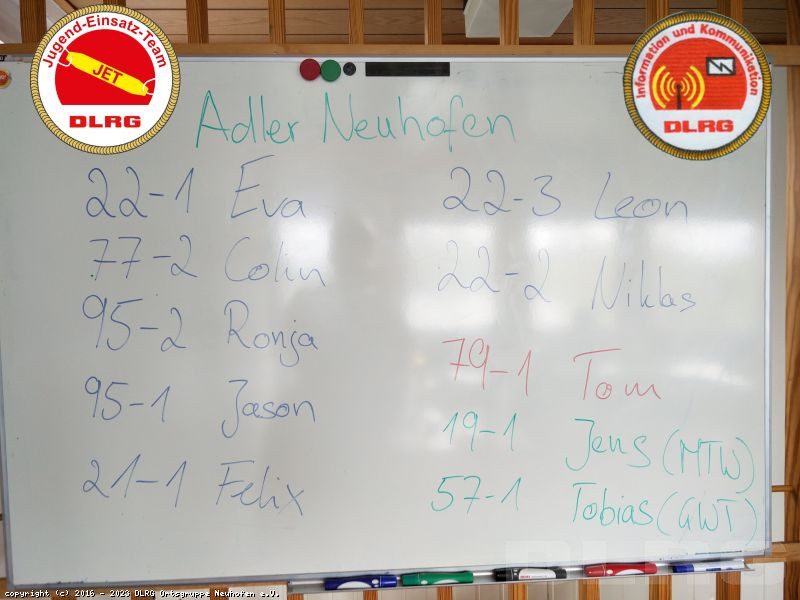 Jugend-Einsatz-Team
JET
DLRG
Information und Kommunikation
DLRG
Adler Neuhofen
22-1 Eva
77-2 Colin
95-2 Ronja
95-1 Jason
21-1 Felix
22-3 Leon
22-2 Niklas
79-1 Tom
19-1 Jens (MTW)
57-1 Tobias (GWT)
copyright (c) 2016 - 2023 DLRG Ortsgruppe Neuhofen e.V.